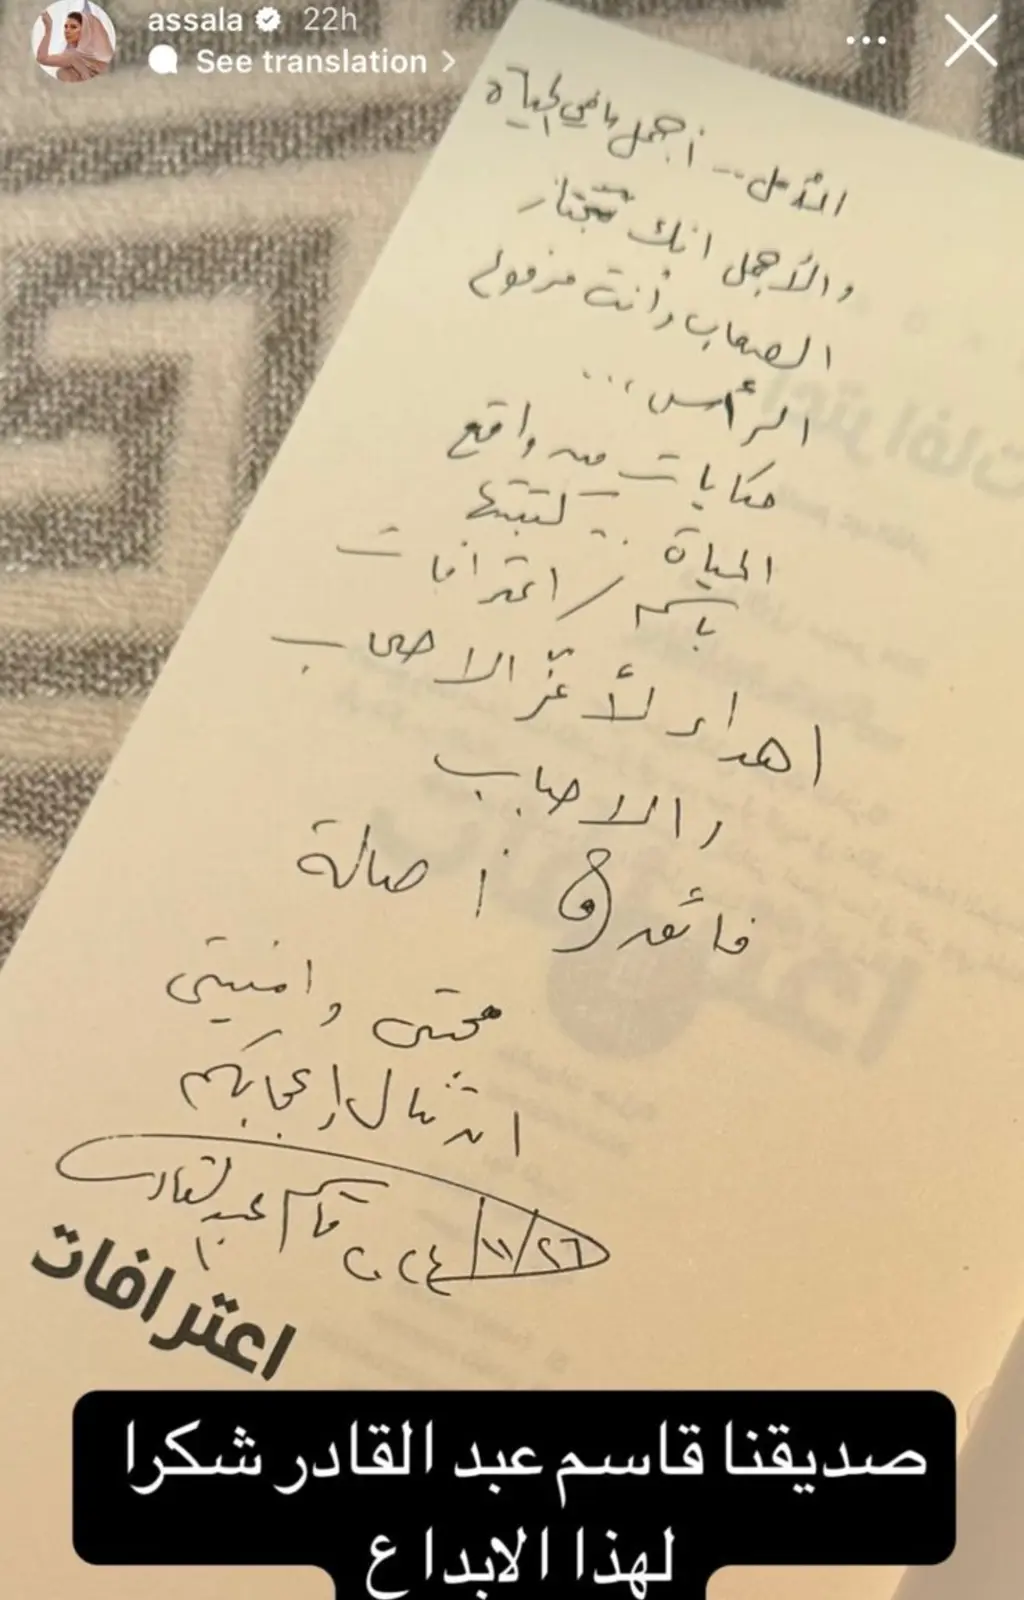 assala 22h
See translation
الأمل... أجمل ما في الحياة
والأجمل انك تجتاز
الصعاب وأنت مرفوع
الرأس...
حكايات من واقع
الحياة .. كتبتها
باسم / اعترافات
اهداء لأعزّ الاصحاب
والاحباب
فائق و أصالة
محبتي وامنيتي
ان تنال إعجابكم
قاسم عبد القادر
٢٠٢٤/١١/٢٦
اعترافات
صديقنا قاسم عبد القادر شكرا
لهذا الابداع